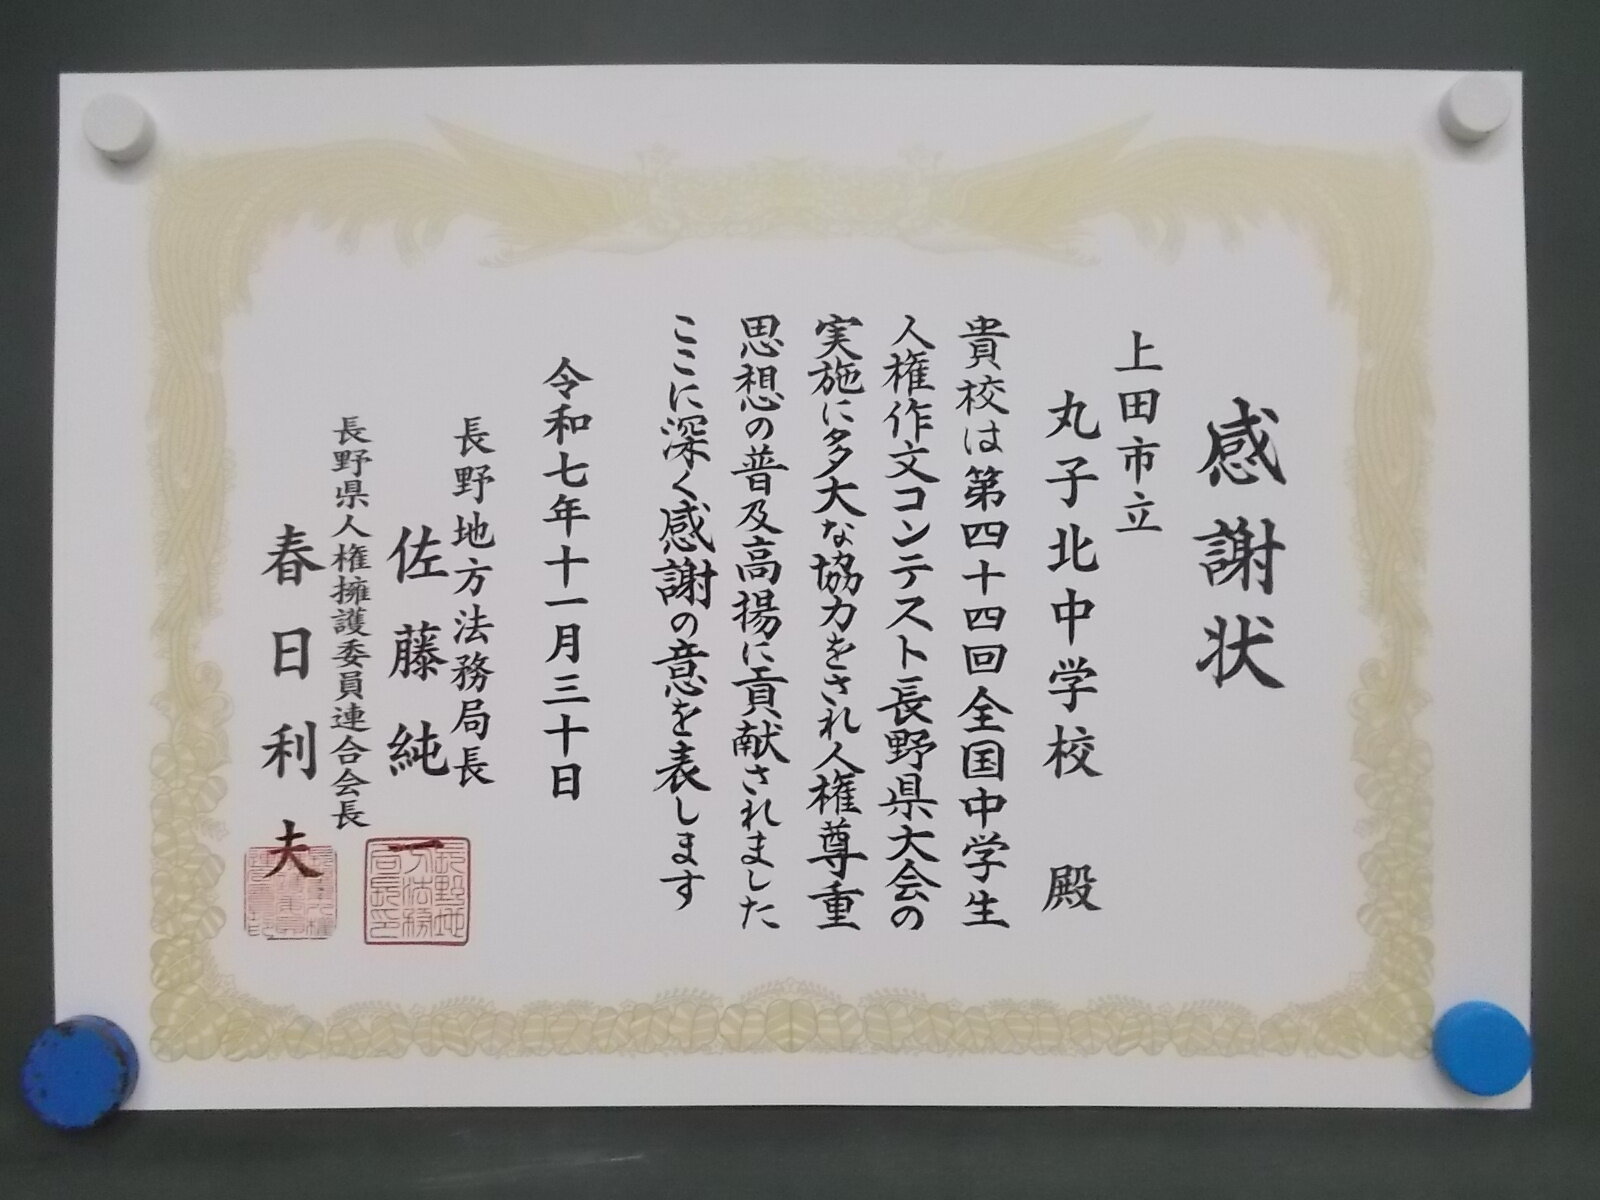 感謝状
上田市立
丸子北中学校 殿
貴校は第四十四回全国中学生
人権作文コンテスト長野県大会の
実施に多大な協力をされ人権尊重
思想の普及高揚に貢献されました
ここに深く感謝の意を表します
令和七年十一月三十日
長野地方法務局長
佐藤純一
長野県人権擁護委員連合会長
春日利夫